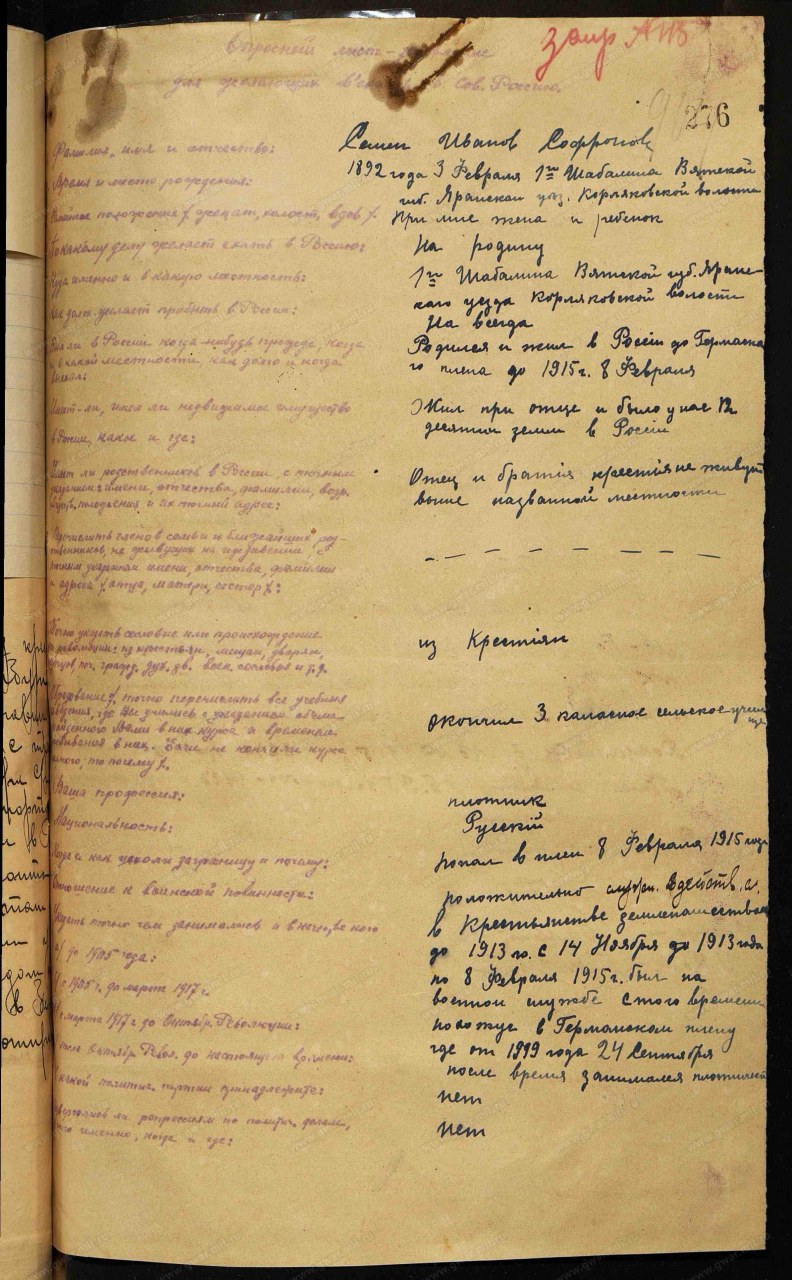 Опросный лист-
для желающих в'ехать в Сов. Россию.
загр АПБ
276
Фамилия, имя и отчество: Семен Иванов Софронов
Время и место рождения: 1892 года 3 Февраля 1ая Шабалина Вятской
губ. Яранскаи уез. Корляковской волости
Семейное положение /женат, холост, вдов/. При мне жена и ребенок
По какому делу желает ехать в Россию: На родину
Куда именно и в какую местность: 1ая Шабалина Вятской губ. Яранс-
каго уезда Корляковской волости
Как долг. желает пробыть в России: На всегда
Был ли в России когда-нибудь прежде, когда Родился и жил в Росcіи до Германска
и в какой местности, как долго и когда го плена до 1915 г. 8 Февраля
выехал:
Имеет-ли, имел ли недвижимое имущество Жил при отце и было у нас 12
в России, какое и где: десятин земли в Росcіи
Имеет ли родственников в России, с точным Отец и братія крестіяне живут
указанием имени, отчества, фамилии, возр. выше названной местности
их положения и их точный адрес:
Перечислить членов семьи и ближайших род-
ственников, не живущих на иждивении, с — — — — — — —
точным указанием имени, отчества, фамилии
и адреса /отца, матери, сестер/:
Точно указать сословие или происхождение
до революции: из крестьян, мещан, дворян, из Крестіян
купцов, поч. гражд. дух. зв. всех сословья и т.д.
Образование /точно перечислить все учебные
заведения, где Вы учились с указанием об'ема окончил 3 классное сельское учили
пройденного Вами в них курса и времени ще
пребывания в них. Если не кончили курса
то почему/.
Ваша профессия: плотник
Национальность: Русскій
Когда и как уехали заграницу и почему: попал в плен 8 Февраля 1915 года
Отношение к воинской повинности: положительно служ. в действ. а.
Указать точно чем занимались и в качестве кого в Крестьянстве землепашеством
а/ до 1905 года: до 1913 го. с 14 Ноября до 1913 года
с 1905 г. до марта 1917 г. по 8 Февраля 1915 г. был на
военной службе с того времени
с марта 1917 г. до Октябр. Революции: нахожус в Германском плену
после Октябр. Рев. до настоящего времени: где от 1919 года 24 Сентября
после время занимался плотничей
К какой политич. партии принадлежите: нет
Подвергались ли репрессиям по политич. делам,
за что именно, когда и где: нет